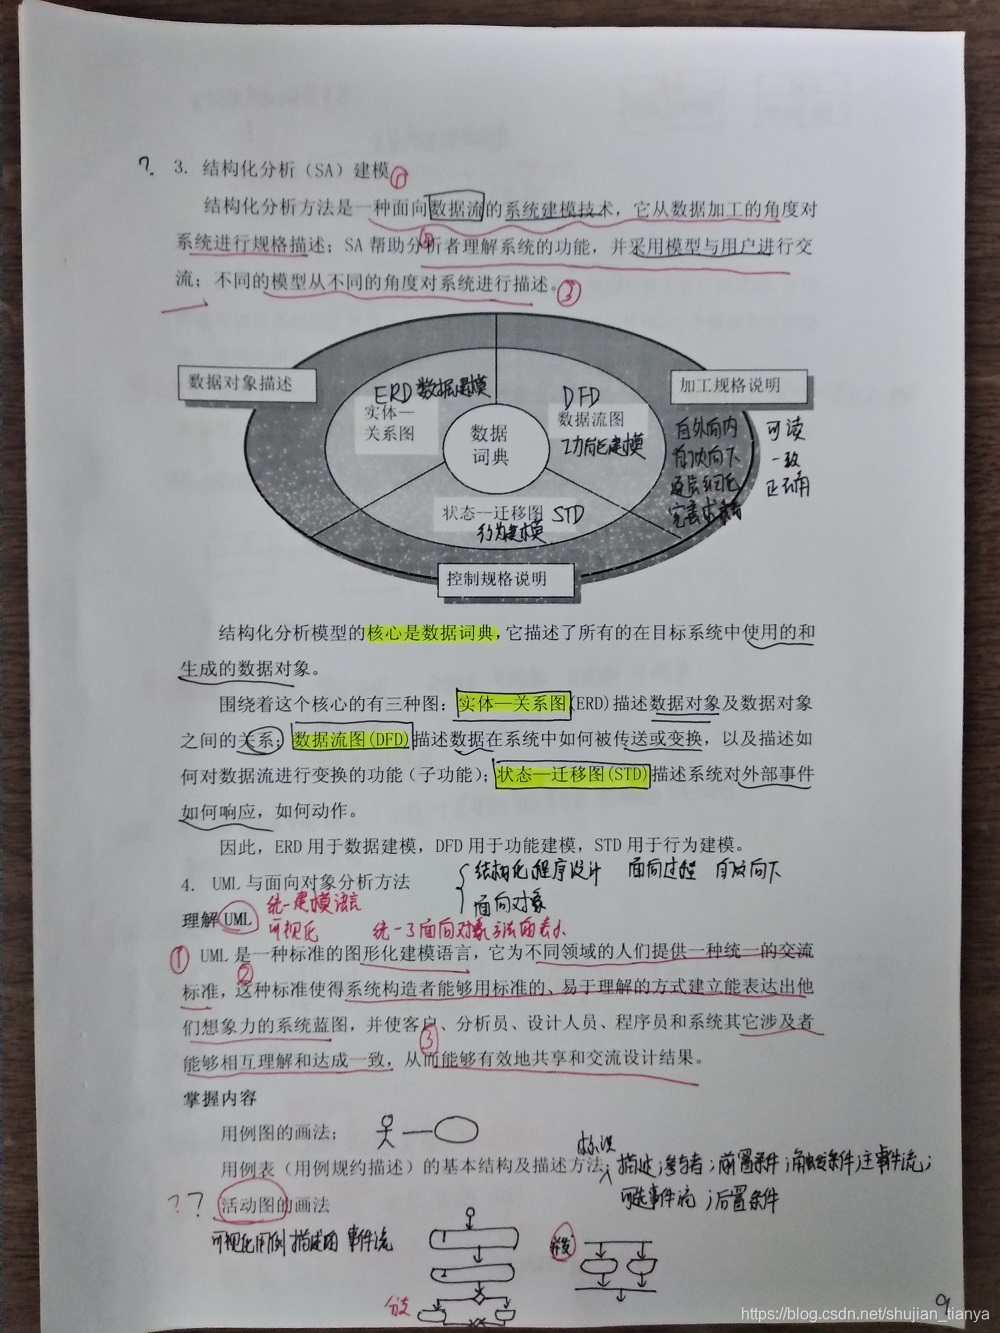 ? 3. 结构化分析（SA）建模①
结构化分析方法是一种面向数据流的系统建模技术，它从数据加工的角度对
系统进行规格描述；SA 帮助分析者理解系统的功能，并采用模型与用户进行交
流；不同的模型从不同的角度对系统进行描述。③
②
数据对象描述
加工规格说明
ERD 数据建模
实体—
关系图
DFD
数据流图
功能建模
数据
词典
自外向内
自顶向下
逐层细化
完善求精
可读
一致
正确
状态—迁移图 STD
行为建模
控制规格说明
结构化分析模型的核心是数据词典，它描述了所有的在目标系统中使用的和
生成的数据对象。
围绕着这个核心的有三种图：实体—关系图(ERD)描述数据对象及数据对象
之间的关系；数据流图(DFD)描述数据在系统中如何被传送或变换，以及描述如
何对数据流进行变换的功能（子功能）；状态—迁移图(STD)描述系统对外部事件
如何响应，如何动作。
因此，ERD 用于数据建模，DFD 用于功能建模，STD 用于行为建模。
4. UML 与面向对象分析方法
结构化程序设计 面向过程 自顶向下
面向对象
理解 UML
统一建模语言
可视化 统一了面向对象方法的表示
① UML 是一种标准的图形化建模语言，它为不同领域的人们提供一种统一的交流
②
标准，这种标准使得系统构造者能够用标准的、易于理解的方式建立能表达出他
们想象力的系统蓝图，并使客户、分析员、设计人员、程序员和系统其它涉及者
③
能够相互理解和达成一致，从而能够有效地共享和交流设计结果。
掌握内容
用例图的画法；
用例表（用例规约描述）的基本结构及描述方法；
标识
描述；参与者；前置条件；触发条件；主事件流；
可选事件流；后置条件
?? 活动图的画法
可视化用例描述的事件流
并发
分支
9
https://blog.csdn.net/shujian_tianya